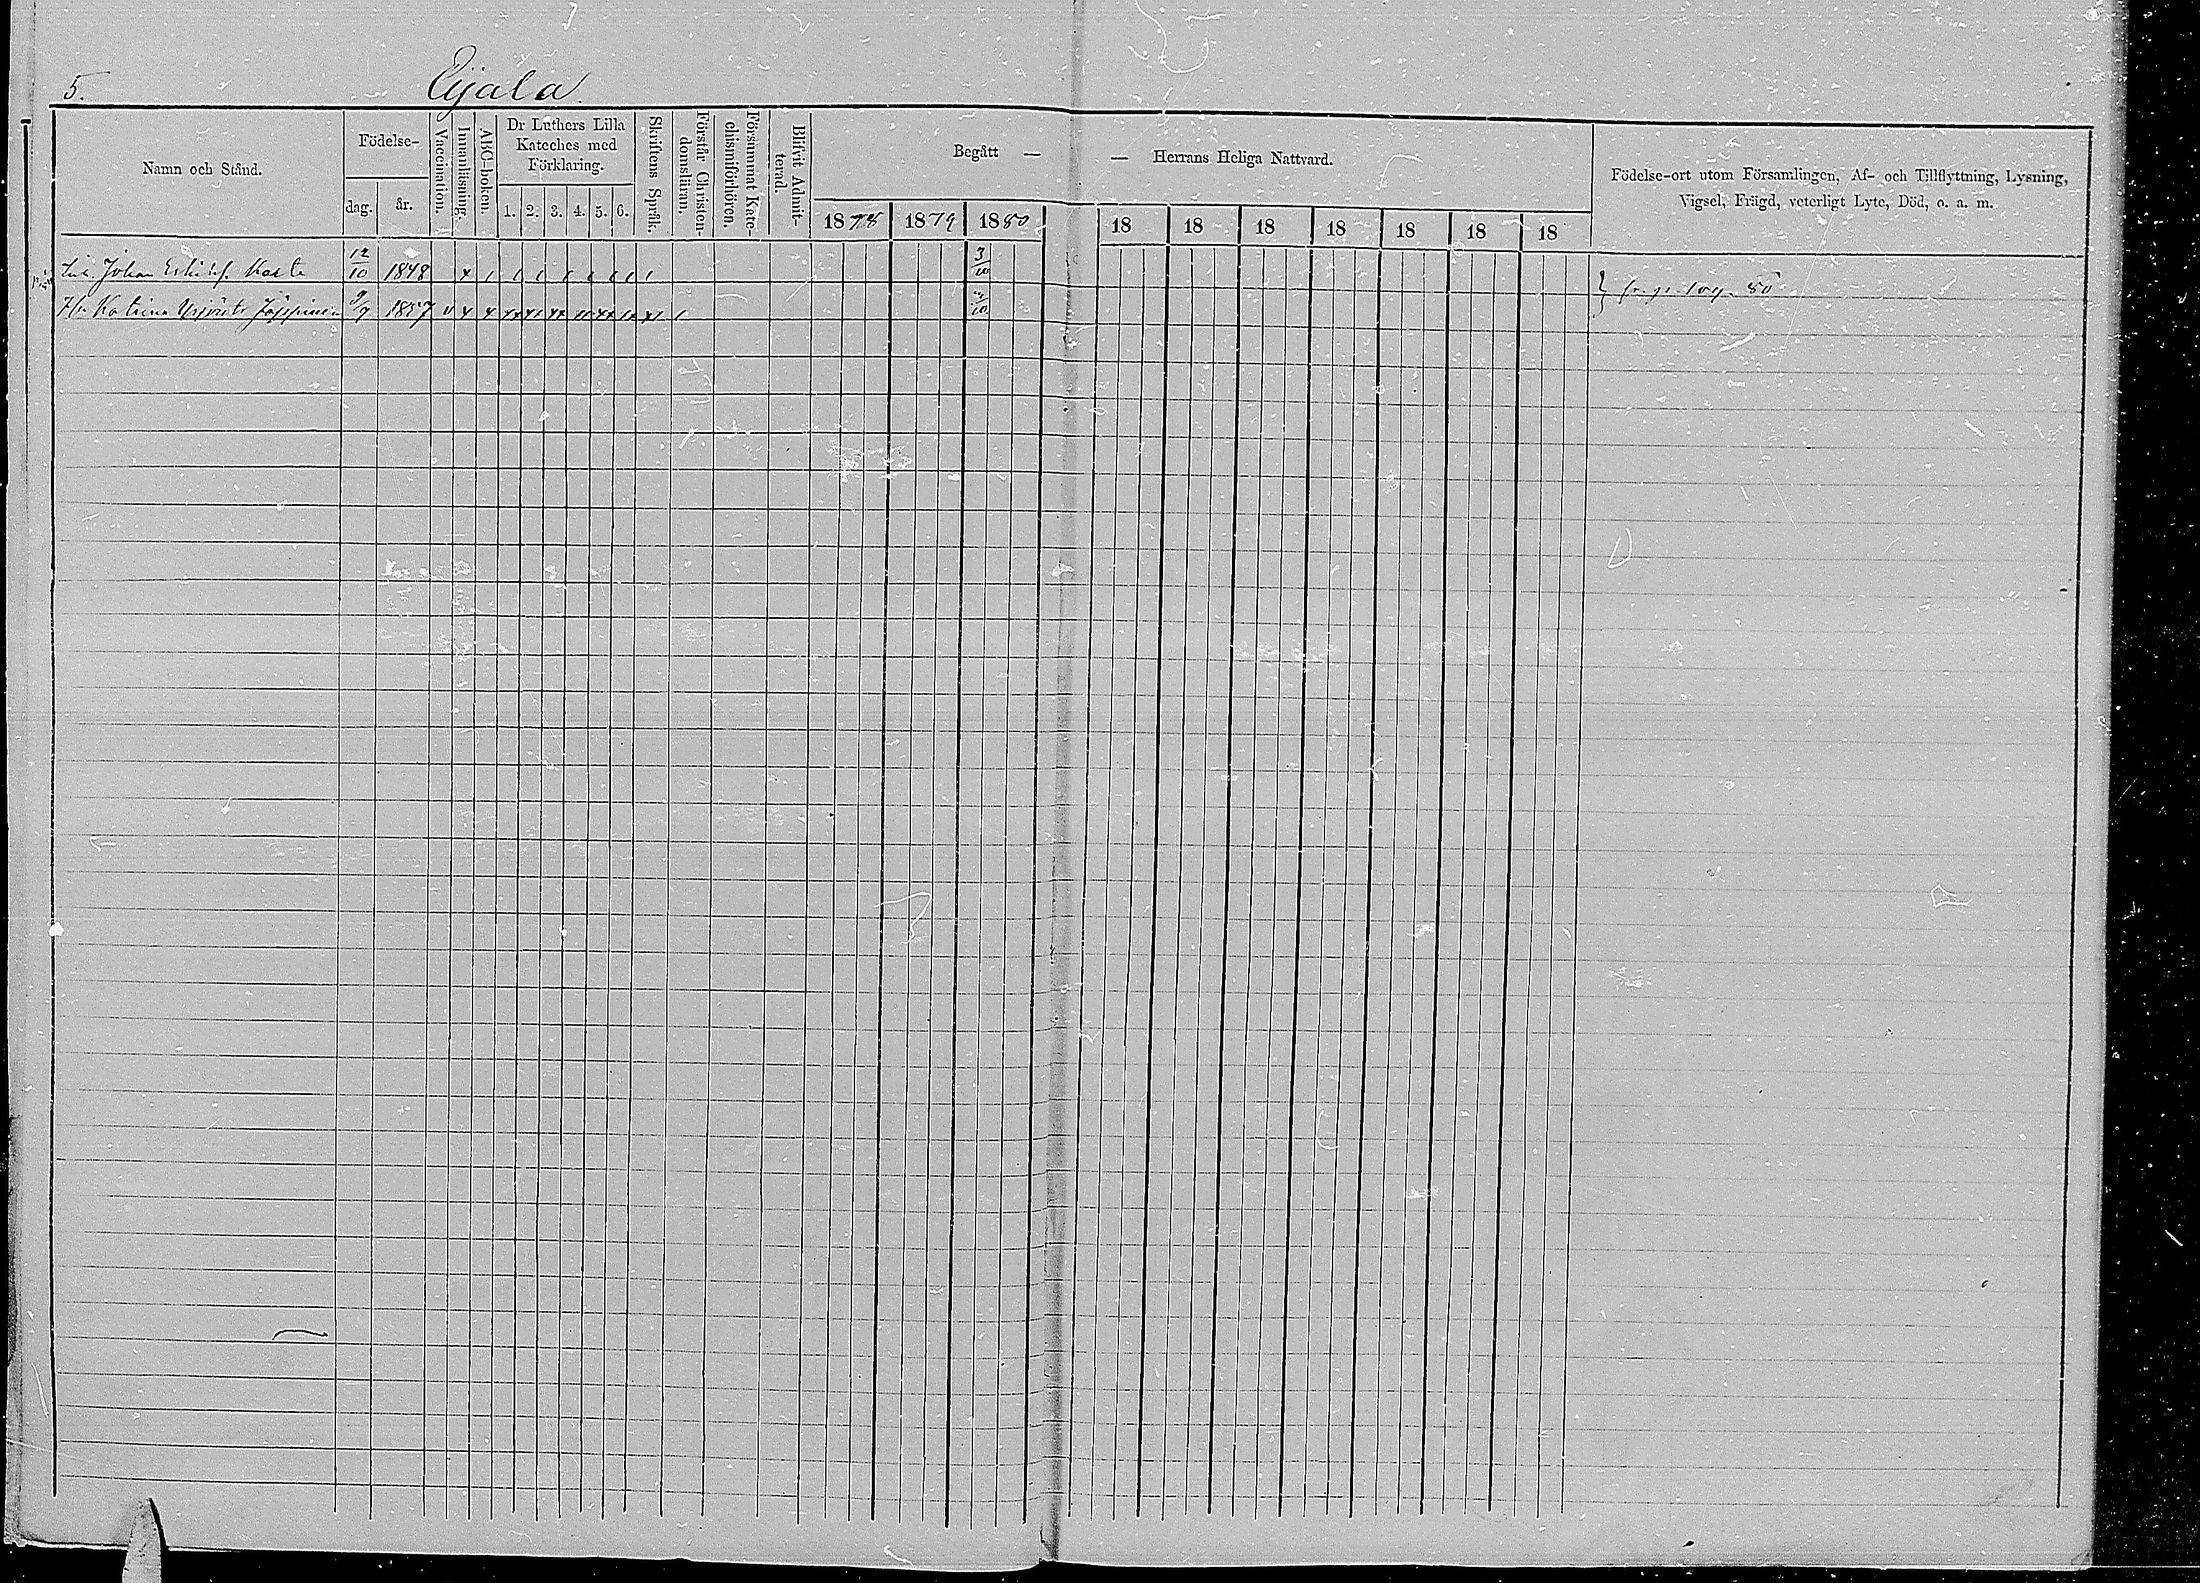 5. Eijala.
Namn och Stånd.
Födelse-
dag. år.
Vaccination.
Innanläsning.
ABC-boken.
Dr Luthers Lilla
Kateches med
Förklaring.
1. 2. 3. 4. 5. 6.
Skriftens Språk.
Förstår Christen-
domsläran.
Försummat Kate-
chismiförhören.
Blifvit Admit-
terad.
Begått — — Herrans Heliga Nattvard.
1878 1879 1880 18 18 18 18 18 18 18
Födelse-ort utom Församlingen, Af- och Tillflyttning, Lysning,
Vigsel, Frägd, veterligt Lyte, Död, o. a. m.
Johan 12/10 1848 x 3/10
Katrina 9/7 1857 v x x 3/10
fr. p. 109. 80